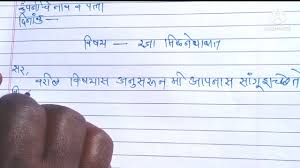 कंपनीचे नाव व पत्ता
दिनांक -
विषय — रजा मिळणेबाबत
सर,
वरील विषयास अनुसरून मी आपणास सांगू इच्छितो